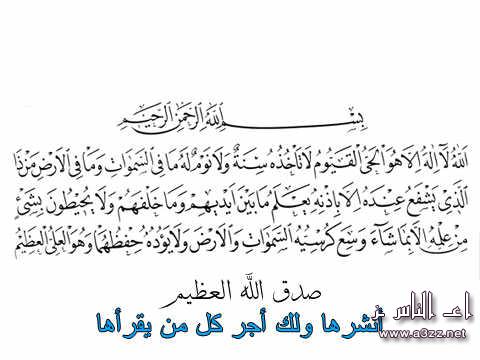 بِسْمِ اللَّهِ الرَّحْمَنِ الرَّحِيمِ
اللَّهُ لَا إِلَهَ إِلَّا هُوَ الْحَيُّ الْقَيُّومُ لَا تَأْخُذُهُ سِنَةٌ وَلَا نَوْمٌ لَهُ مَا فِي السَّمَوَاتِ وَمَا فِي الْأَرْضِ مَنْ ذَا
الَّذِي يَشْفَعُ عِنْدَهُ إِلَّا بِإِذْنِهِ يَعْلَمُ مَا بَيْنَ أَيْدِيهِمْ وَمَا خَلْفَهُمْ وَلَا يُحِيطُونَ بِشَيْءٍ
مِنْ عِلْمِهِ إِلَّا بِمَا شَاءَ وَسِعَ كُرْسِيُّهُ السَّمَوَاتِ وَالْأَرْضَ وَلَا يَؤُدُهُ حِفْظُهُمَا وَهُوَ الْعَلِيُّ الْعَظِيمُ
صدق الله العظيم
أنشرها ولك أجر كل من يقرأها
اعـز الناس
www.a3zz.net